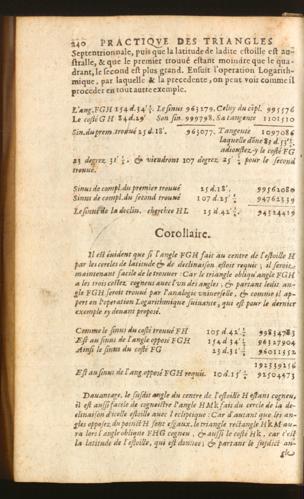 240 PRACTIQVE DES TRIANGLES
Septentrionnale, puis que la latitude de ladite estoille est au-
stralle, & que le premier trouué estant moindre que le qua-
drant, le second est plus grand. Ensuit l'operation Logarith-
mique, par laquelle & la precedente, on peut voir comme il
proceder en tout autre exemple.
L'ang. FGH 154 d. 34' ½. Le sinus 963279. Celuy du cõpl. 995576
Le costé G H 84 d. 29' Son sin. 999798. Sa tangente 1101510
Sin. du prem. trouué 25 d. 18'. 963077. Tangente 1097086
laquelle dône 83 d. 53' ½.
adioustez-y le costé FG
23 degrez 31' ½. & viendront 107 degrez 25' ½ pour le second
trouué.
Sinus de compl. du premier trouué 25 d. 18'. 99562080
Sinus de compl. du second trouué 107 d. 25' ½ 94762339
Le sinus de la declin. cherchee HL 15 d. 42' ½. 94324419
Corollaire.
Il est éuident que si l'angle FGH fait au centre de l'estoille H
par les cercles de latitude & de declinaison estoit requis, il seroit
maintenant facile de le trouuer: Car le triangle obliquangle FGH
a les trois costez cogneus auec l'vn des angles, & partant ledit an-
gle FGH seroit trouué par l'analogie vniuerselle, & comme il ap-
pert en l'operation Logarithmique suiuante, qui est pour le dernier
exemple cy deuant proposé.
Comme le sinus du costé trouué FH 105 d. 42' ½ 99834783
Est au sinus de l'angle opposé FGH 154 d. 34' ½ 96327904
Ainsi le sinus du costé FG 23 d. 31' ½ 96011352
192339256
Est au sinus de l'ang. opposé FGH requis. 10 d. 15' ½ 92504473
Dauantage, le susdit angle du centre de l'estoille H estant cogneu,
il est aussi facile de cognoistre l'angle HMk fait du cercle de la de-
clination d'icelle estoille auec l'ecliptique: Car d'autant que les an-
gles opposez du poinct H sont esgaux, le triangle rectangle HkM au-
ra lors l'angle oblique FHG cogneu, & aussi le costé Hk, car c'est
la latitude de l'estoille, qui est donnee; & partant le susdict an-